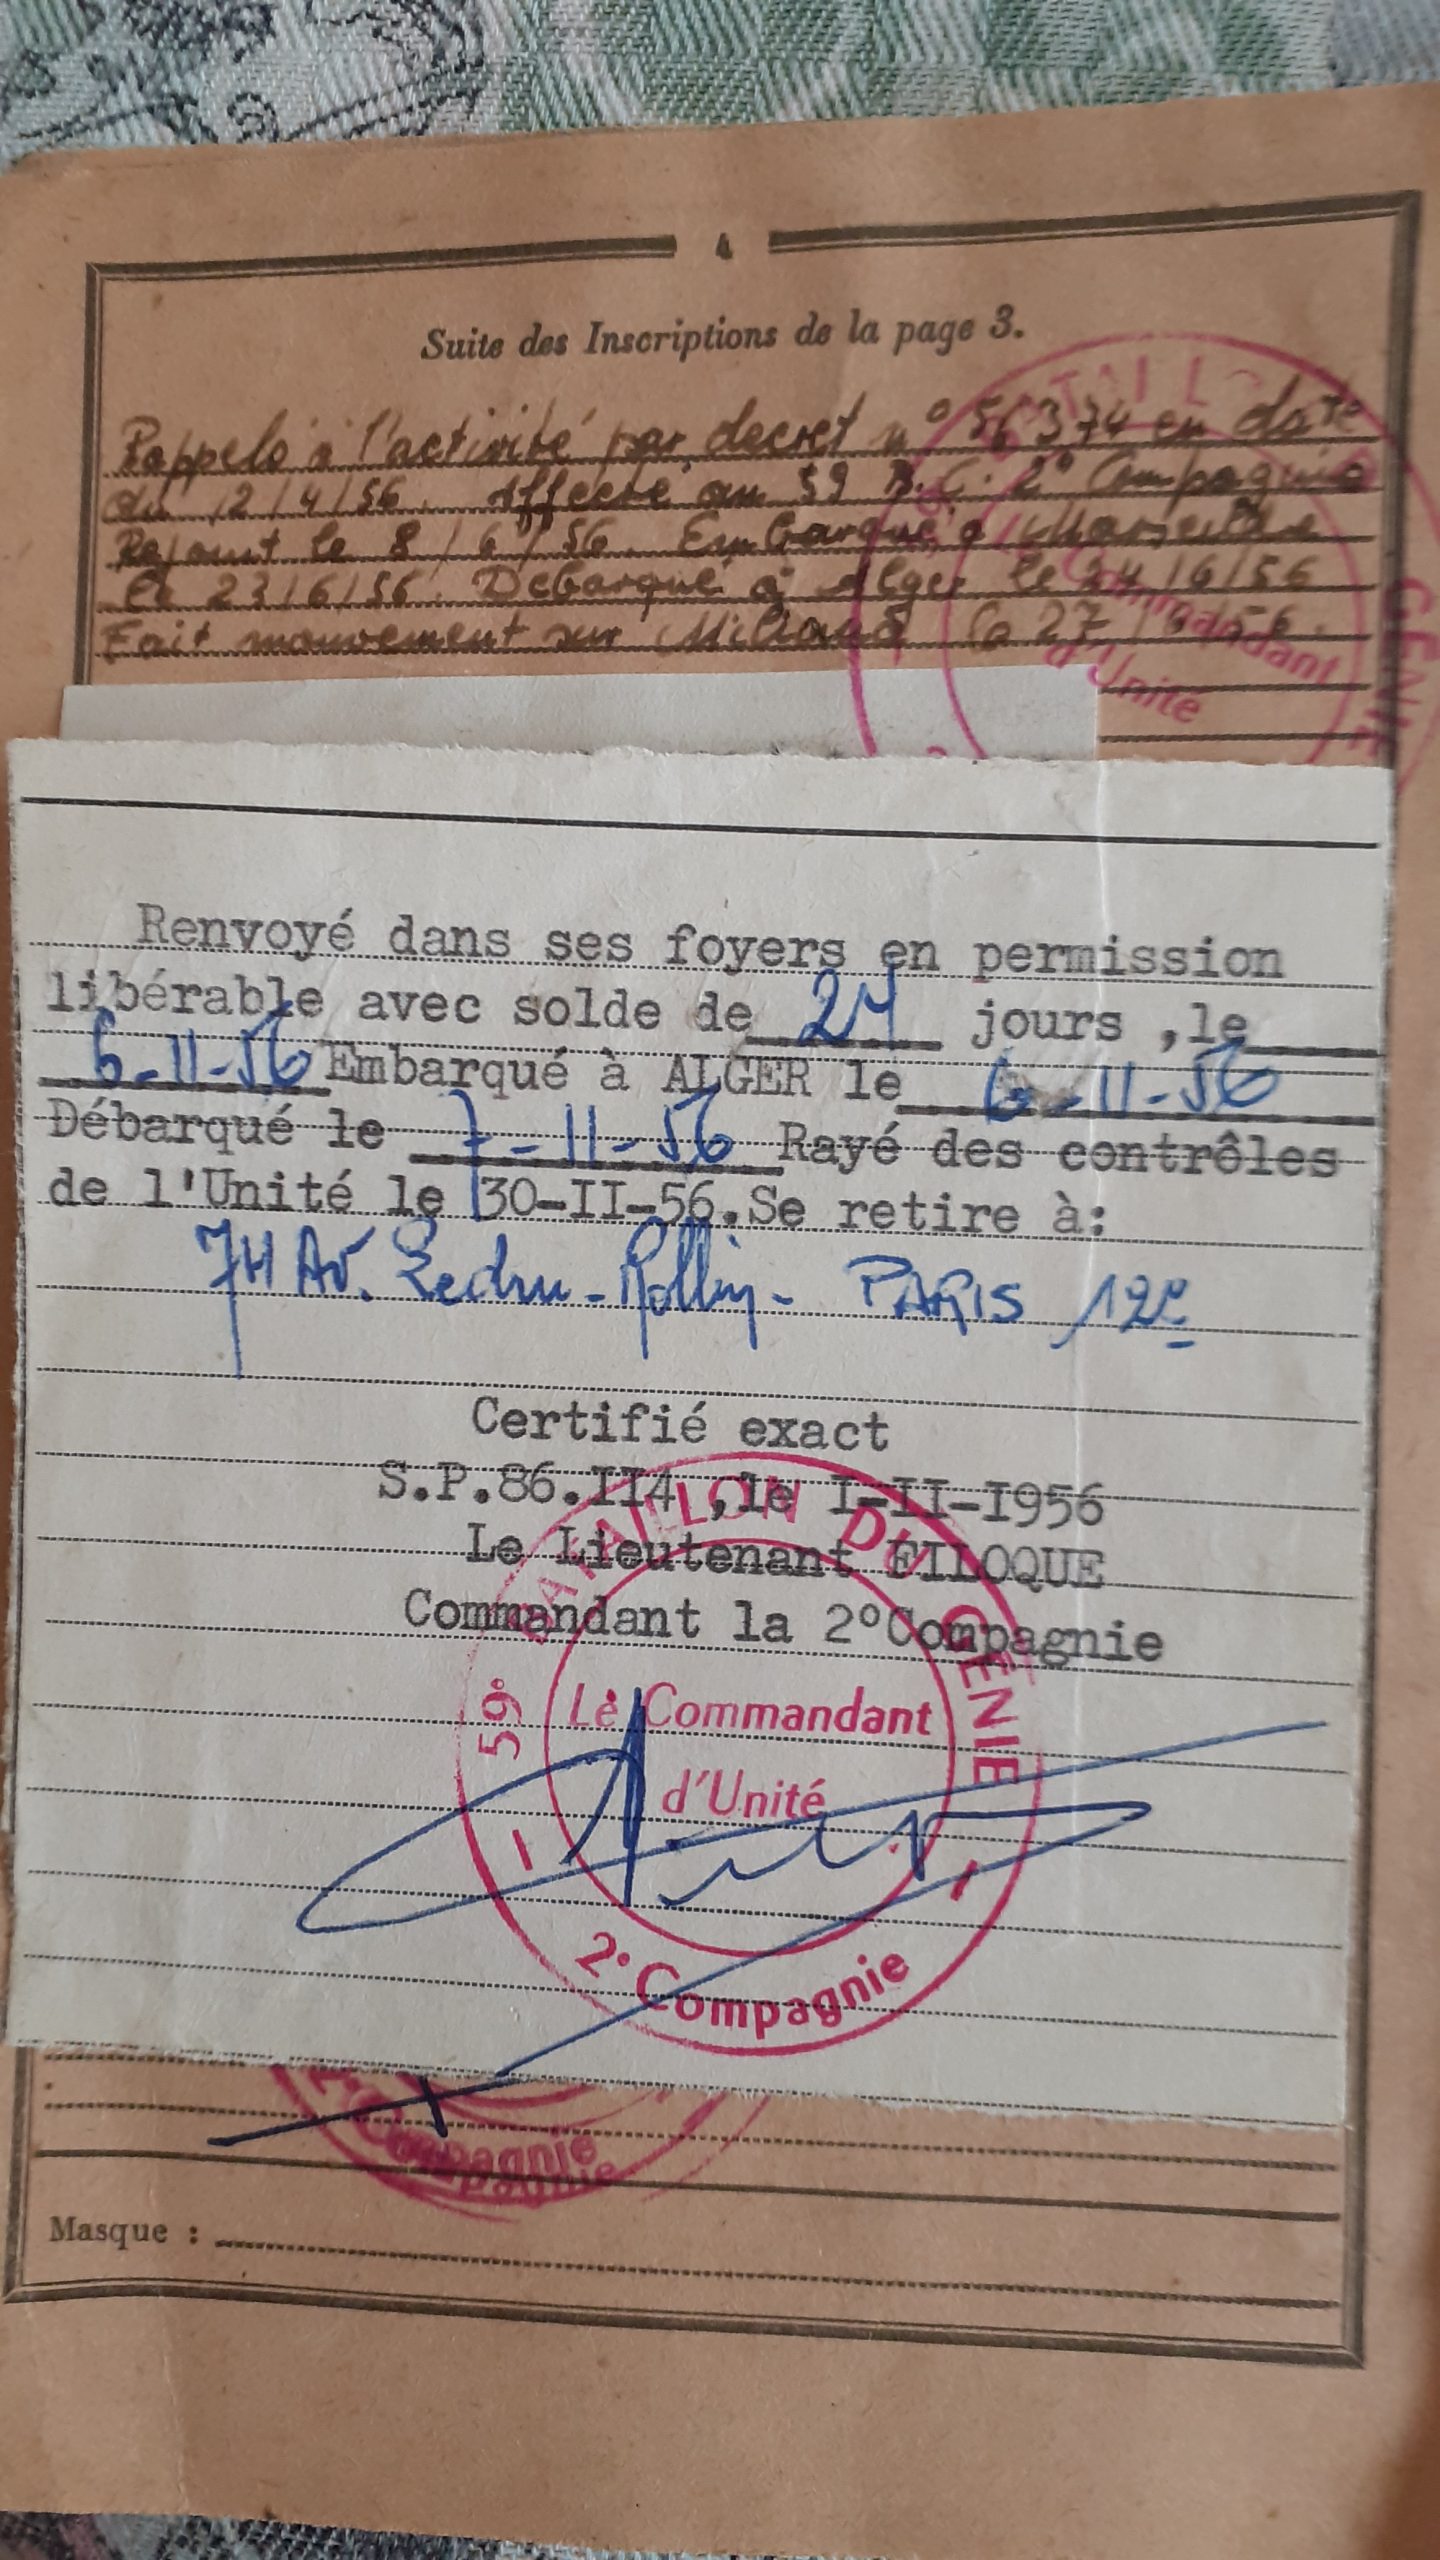 4
Suite des Inscriptions de la page 3.
Rappelé à l'activité par decret n° 56374 en date
du 12/4/56. Affecté au 59 B.G. 2° Compagnie
Rejoint le 8/6/56. Embarqué à Marseille
le 23/6/56. Debarqué à Alger le 24/6/56
Fait mouvement sur Miliana le 27/6/56.
BATAILLON GENIE
Commandant
d'Unité
Renvoyé dans ses foyers en permission
libérable avec solde de 24 jours ,le
6-11-56 Embarqué à ALGER le 6-11-56
Débarqué le 7-11-56 Rayé des contrôles
de l'Unité le 30-II-56.Se retire à:
74 Av. Ledru-Rollin- PARIS 12e
Certifié exact
S.P.86.II4 ,le I-II-I956
Le Lieutenant FILOQUE
Commandant la 2°Compagnie
59° BATAILLON DU GENIE
Le Commandant
d'Unité
2° Compagnie
Compagnie
Masque :